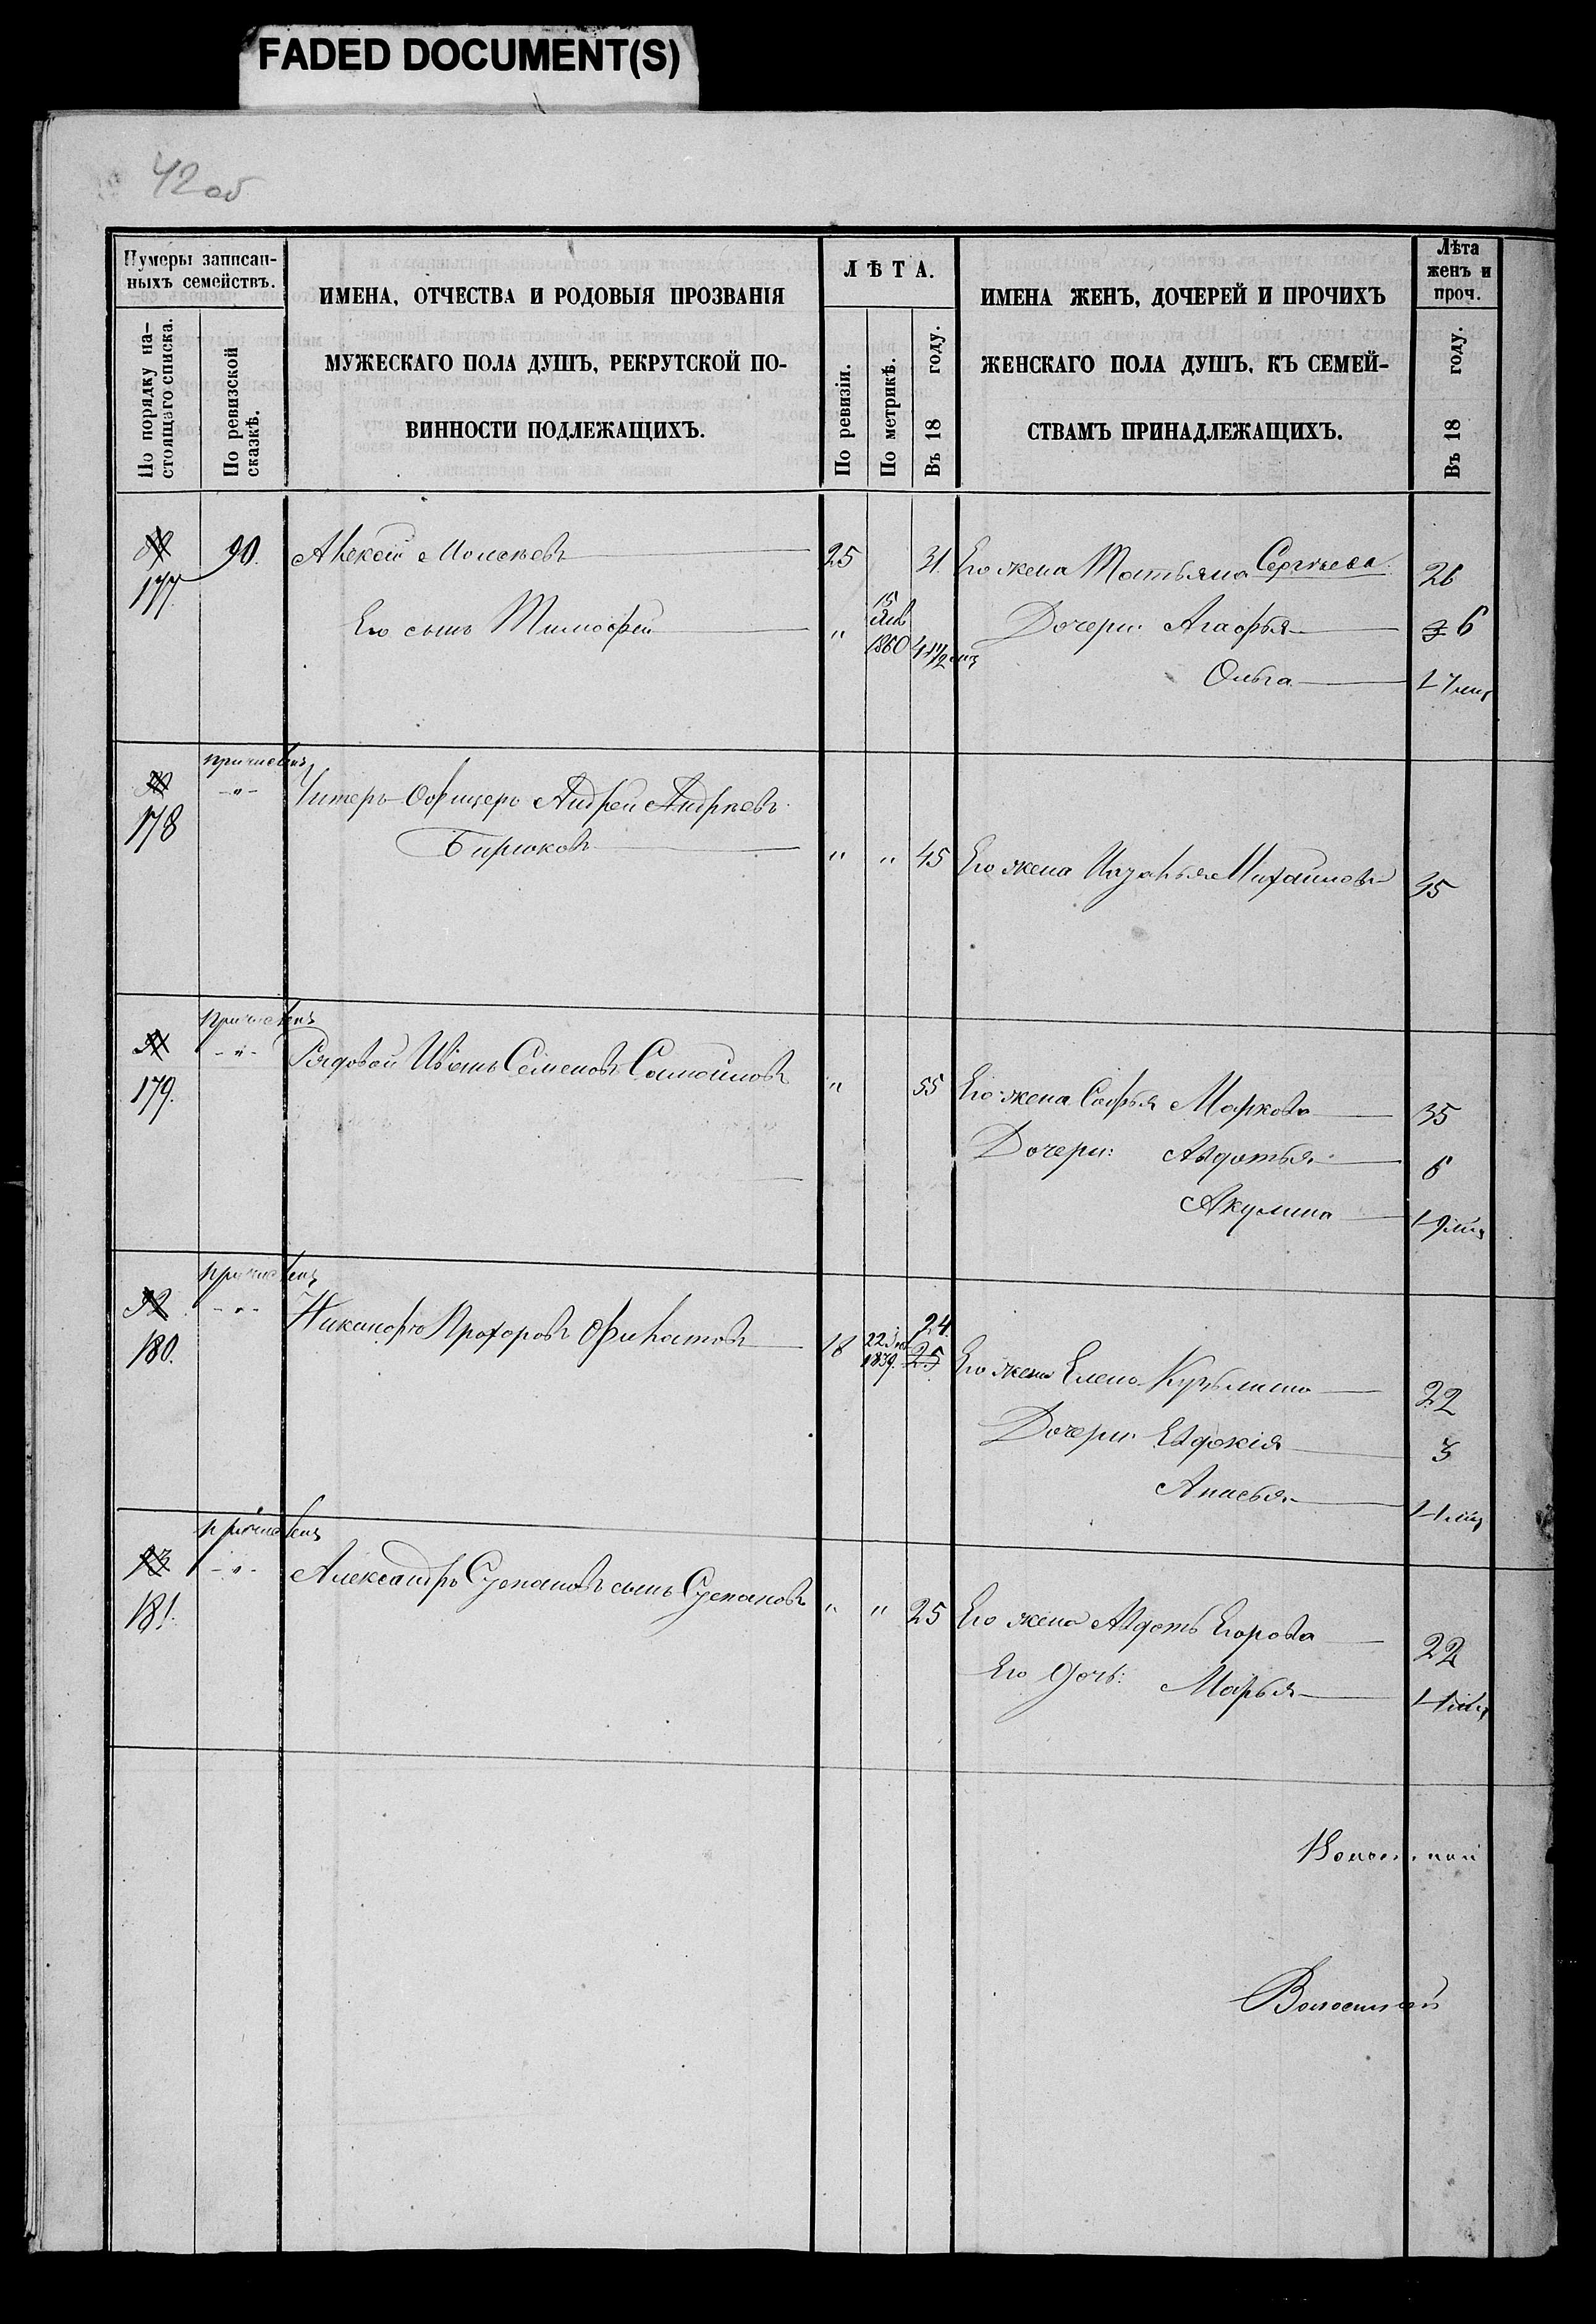 FADED DOCUMENT(S)
42 об
Нумеры записан-
ныхъ семействъ.
По порядку на-
стоящаго списка.
По ревизской
сказкѣ.
ИМЕНА, ОТЧЕСТВА И РОДОВЫЯ ПРОЗВАНІЯ
МУЖЕСКАГО ПОЛА ДУШЪ, РЕКРУТСКОЙ ПО-
ВИННОСТИ ПОДЛЕЖАЩИХЪ.
ЛѢТА.
По ревизіи.
По метрикѣ.
Въ 18 году.
ИМЕНА ЖЕНЪ, ДОЧЕРЕЙ И ПРОЧИХЪ
ЖЕНСКАГО ПОЛА ДУШЪ, КЪ СЕМЕЙ-
СТВАМЪ ПРИНАДЛЕЖАЩИХЪ.
Лѣта
женъ и
проч.
Въ 18 году.
177 90. Алексѣй 25 31. Его жена Татьяна Сергѣева 26
Его сынъ Тимофей " 15 Янв 1860 4 11/2 мц Дочери: Агафья 6
Ольга 1-7 мц
причисленъ
178 -"- Унтеръ-Офицеръ Андрей Андрѣевъ
Бирюковъ " " 45 Его жена Михаилова 45
причисленъ
179. -"- Рядовой Иванъ Семеновъ Самойловъ " 55 Его жена Софья Маркова 35
Дочери: Авдотья 6
Акулина 1-9 мц
причисленъ
92
180. -"- Никаноръ Прохоровъ Филатовъ 18 1839. 24. 25 Его жена Елена Кузьмина 22
Дочери: Евдокія 3
Апасья 1-1 мц
причисленъ
93
181. -"- Александръ Степановъ сынъ Степановъ " " 25 Его жена Авдоть Егорова 22
Его дочь: Марья 1-1 мц
Волостной
Волостной